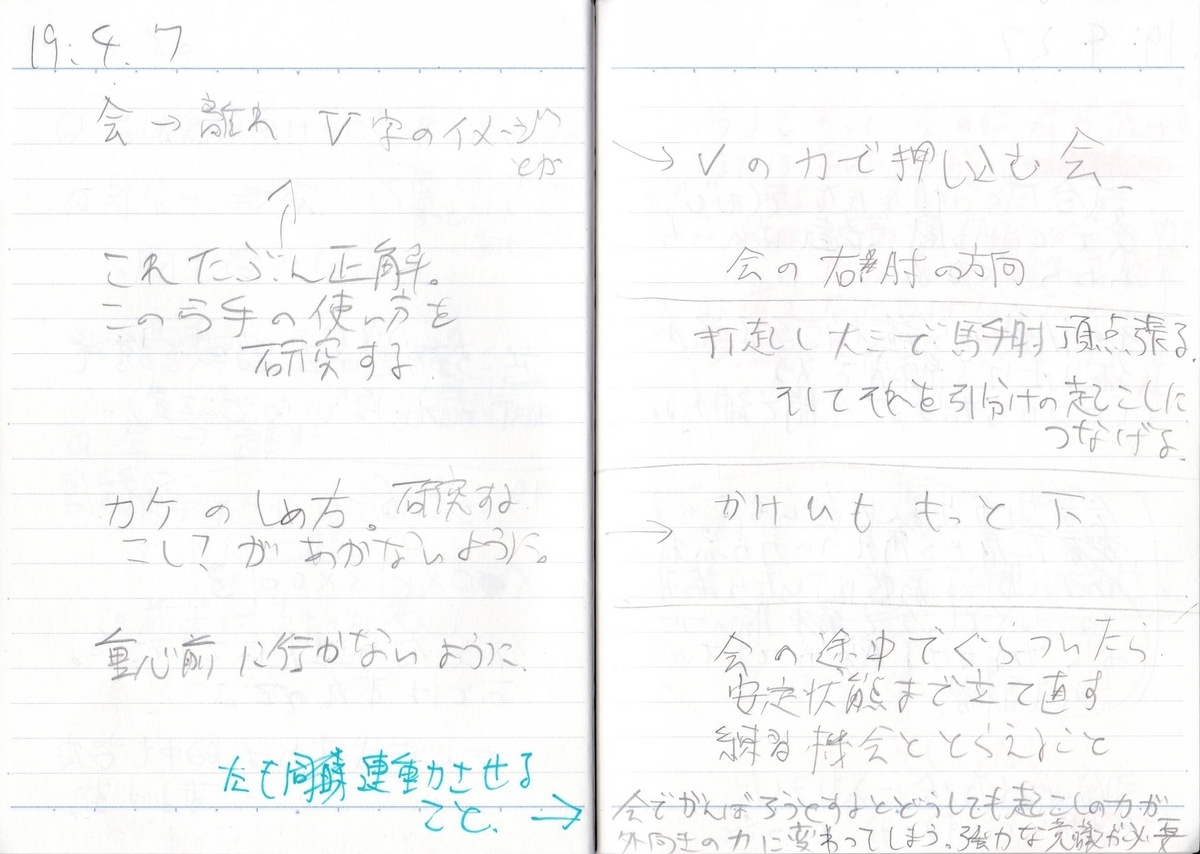 19.4.7
会→離れ V字のイメージ
とか
これたぶん正解。
この弓手の使い方を
研究する
カケのしめ方。研究する
こし?があかないように。
重心前に行かないように
左も同様連動させる
こと。→
→Vの力で押し込む会
会の右肘の方向
打起し大三で馬手肘頂点張る。
そしてそれを引分けの起こしに
つなげる。
→かけひももっと下
会の途中でぐらついたら
安定状態まで立て直す
練習機会ととらえること
会でがんばろうとするとどうしても起こしの力が
外向きの力に変わってしまう。強力な意識が必要